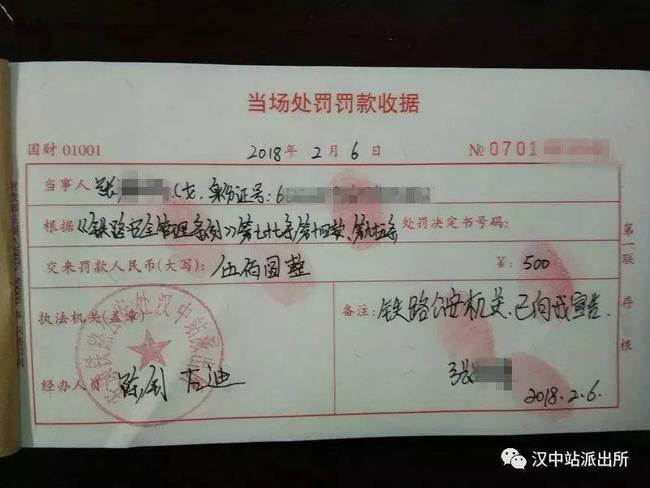 当场处罚罚款收据
国财 01001 2018 年 2 月 6 日 № 0701
当事人 张 (女, 身份证号: 6
根据《铁路安全管理条例》第七十七条第十四款、第九十五条 处罚决定书号码:
交来罚款人民币(大写): 伍佰圆整 ¥: 500
执法机关(盖章)
备注: 铁路公安机关已向我宣告.
铁路公安处汉中站派出所
经办人员 陈 吉迪
张
2018.2.6.
第一联 存根
汉中站派出所